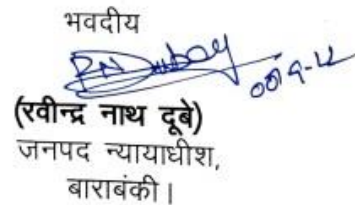 भवदीय
RN Dubey
(रवीन्द्र नाथ दूबे)
जनपद न्यायाधीश,
बाराबंकी।